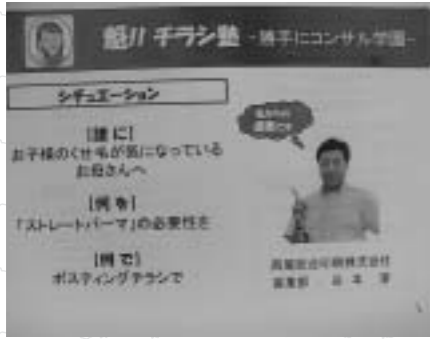 魁!! チラシ塾 -勝手にコンサル学園-
シチュエーション
[誰 に]
お子様のくせ毛が気になっている
お母さんへ
[何 を]
「ストレートパーマ」の必要性を
[何 で]
ポスティングチラシで